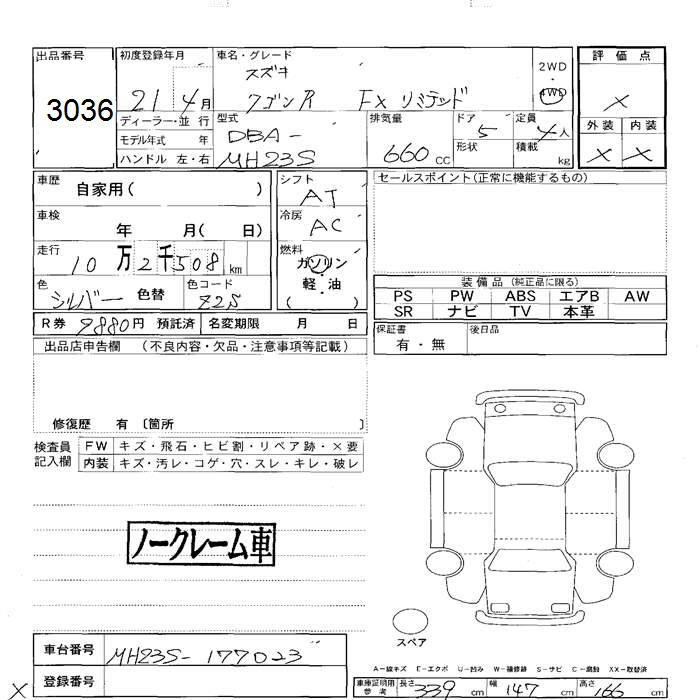 出品番号
3036
初度登録年月
21 4月
車名・グレード
スズキ
ワゴンR FX リミテッド
2WD
・
4WD
評価点
×
外装 内装
× ×
ディーラー・並行
モデル年式 年
ハンドル 左・右
型式
DBA-
MH23S
排気量
660 CC
ドア 5
形状
定員 4人
積載 kg
車歴 自家用( )
車検
年 月( 日)
走行
10万2千508km
色
シルバー 色替
色コード
Z2S
シフト
AT
冷房
AC
燃料
ガソリン
軽・油
( )
セールスポイント(正常に機能するもの)
装備品(純正品に限る)
PS PW ABS エアB AW
SR ナビ TV 本革
R券 9880円 預託済 名変期限 月 日
保証書
有・無
後日品
出品店申告欄 (不良内容・欠品・注意事項等記載)
修復歴 有 〔箇所 〕
検査員
記入欄
FW キズ・飛石・ヒビ割・リペア跡・×要
内装 キズ・汚レ・コゲ・穴・スレ・キレ・破レ
ノークレーム車
スペア
車台番号 MH23S-177023
登録番号
×
A-線キズ E-エクボ U-凹み W-補修跡 S-サビ C-腐蝕 XX-取替済
車庫証明用
参考
長さ 339cm 幅 147cm 高さ 166cm